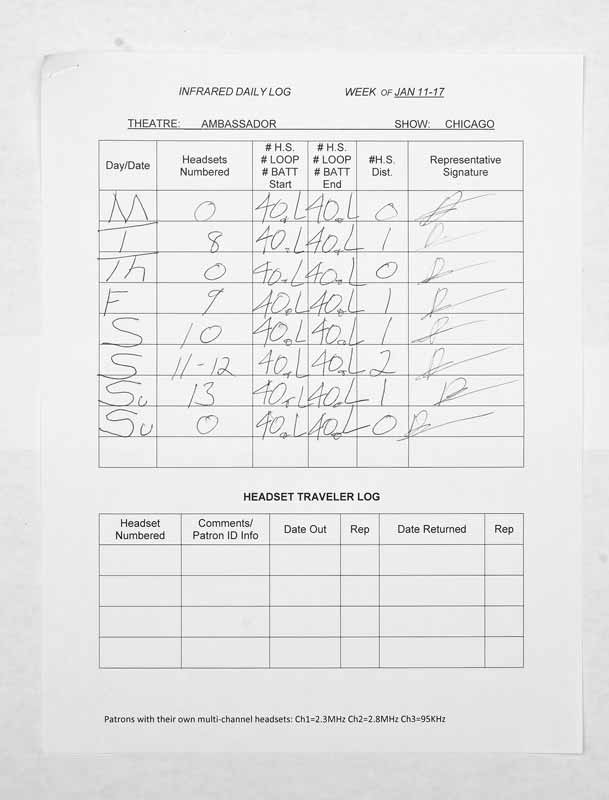 INFRARED DAILY LOG WEEK OF JAN 11-17
THEATRE: AMBASSADOR SHOW: CHICAGO
Day/Date Headsets Numbered # H.S. # LOOP # BATT Start # H.S. # LOOP # BATT End #H.S. Dist. Representative Signature
M 0 40 L 40 L 0
T 8 40 L 40 L 1
Th 0 40 L 40 L 0
F 9 40 L 40 L 1
S 10 40 L 40 L 1
S 11-12 40 L 40 L 2
Su 13 40 L 40 L 1
Su 0 40 L 40 L 0
HEADSET TRAVELER LOG
Headset Numbered Comments/ Patron ID Info Date Out Rep Date Returned Rep
Patrons with their own multi-channel headsets: Ch1=2.3MHz Ch2=2.8MHz Ch3=95KHz